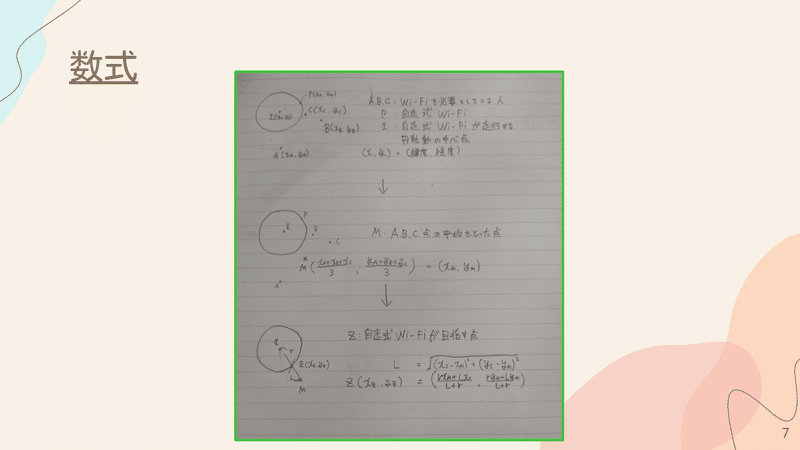 数式
P(x₀, y₀)
I(x₁, y₁)
C(x_C, y_C)
B(x_B, y_B)
A(x_A, y_A)
A.B.C : Wi-Fiを必要としている人
P : 自走式 Wi-Fi
I : 自走式 Wi-Fi が走行する
円軌動の中心点
(x, y) = (緯度, 経度)
↓
P
I
B
C
M
A
M : A.B.C 点の平均をとった点
M((x_A+x_B+x_C)/3 , (y_A+y_B+y_C)/3) = (x_M, y_M)
↓
Z : 自走式 Wi-Fi が目指す点
r
Z(x_Z, y_Z)
L
M
L = √((x_I-x_M)²+(y_I-y_M)²)
Z(x_Z, y_Z) =
7